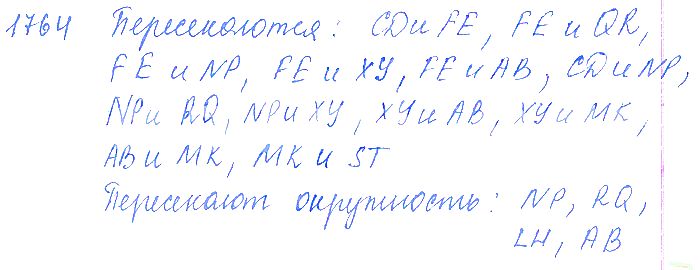 1764 Пересекаются: CD и FE, FE и QR,
FE и NP, FE и XY, FE и AB, CD и NP,
NP и RQ, NP и XY, XY и AB, XY и MK,
AB и MK, MK и ST
Пересекают окружность: NP, RQ,
LH, AB